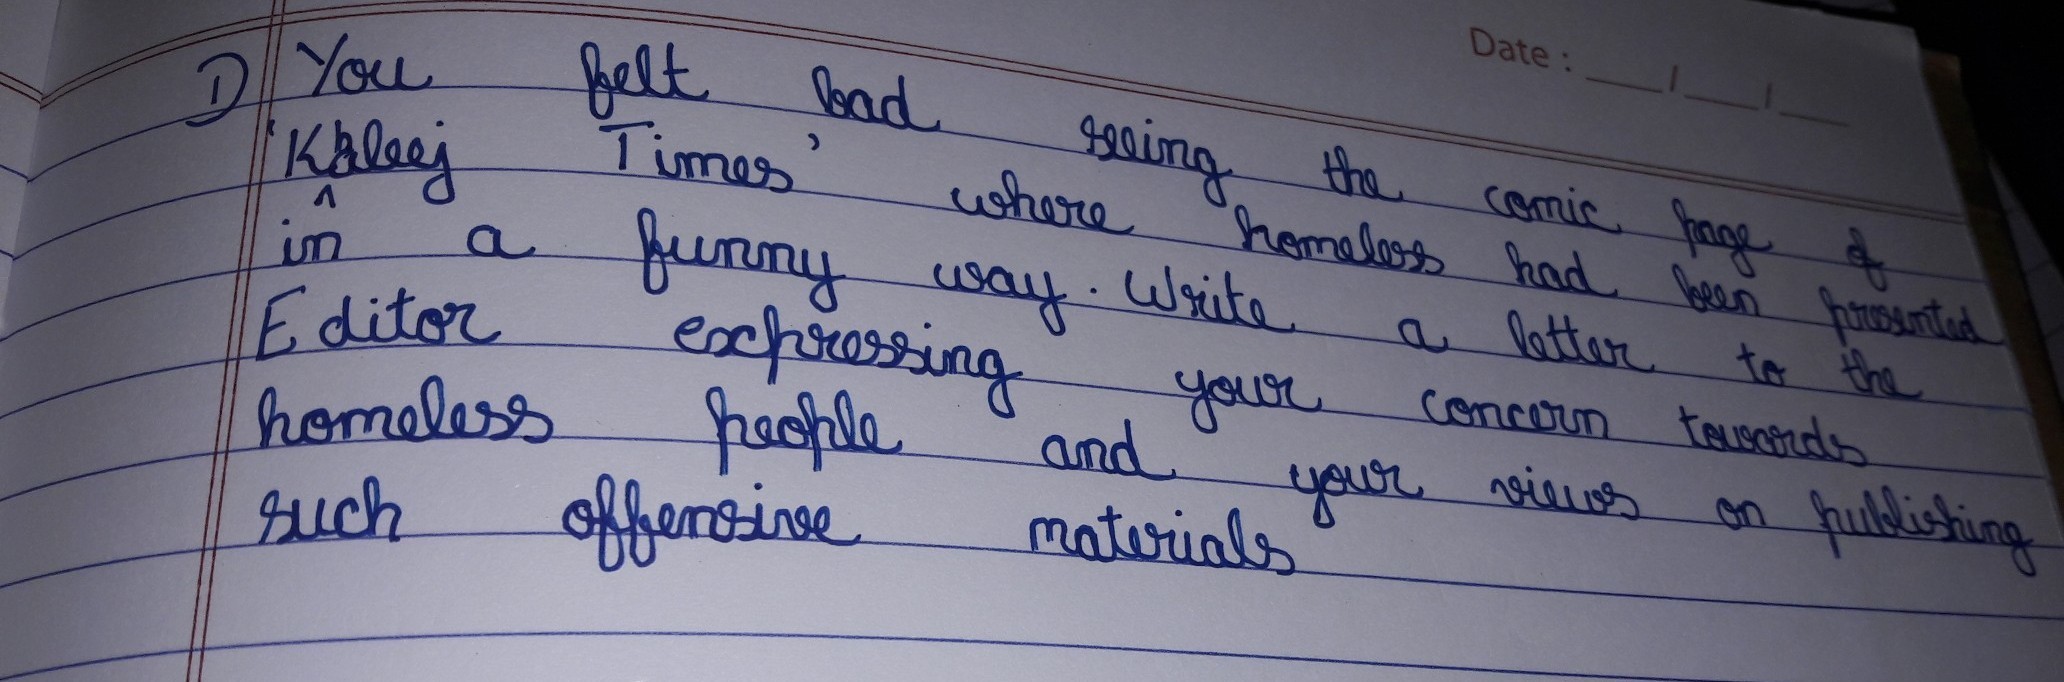 Date : __/__/__
1) You felt bad seeing the comic page of
'Khaleej Times' where homeless had been presented
in a funny way. Write a letter to the
Editor expressing your concern towards
homeless people and your views on publishing
such offensive materials